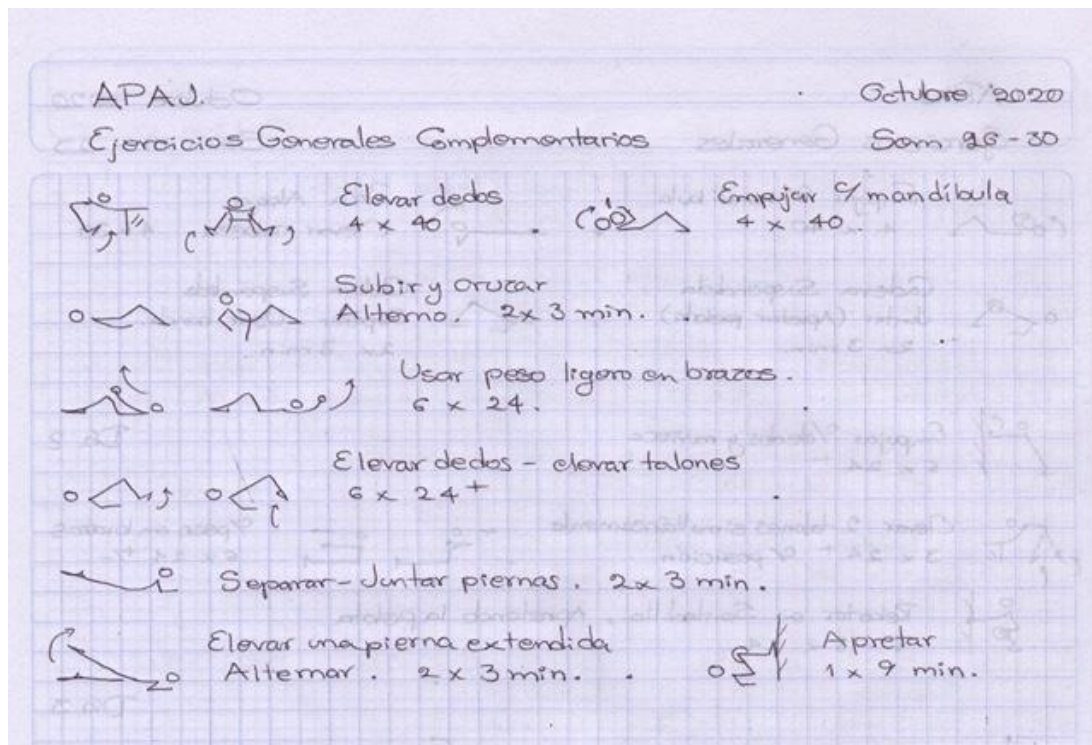 APAJ. Octubre 2020
Ejercicios Generales Complementarios Sem 26-30
Elevar dedos Empujar c/ mandíbula
4 x 40 4 x 40.
Subir y cruzar
Alterno. 2x 3 min.
Usar peso ligero en brazos.
6 x 24.
Elevar dedos - elevar talones
6 x 24+
Separar-Juntar piernas. 2x 3 min.
Elevar una pierna extendida Apretar
Alternar. 2 x 3 min. 1 x 9 min.